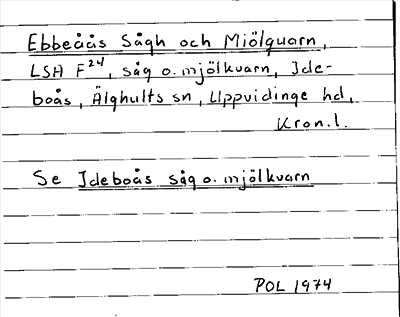 Ebbeåås Sågh och Miölquarn,
LSA F24, såg o. mjölkvarn, Ide-
boås, Älghults sn, Uppvidinge hd,
Kron.l.
Se Ideboås såg o. mjölkvarn
POL 1974